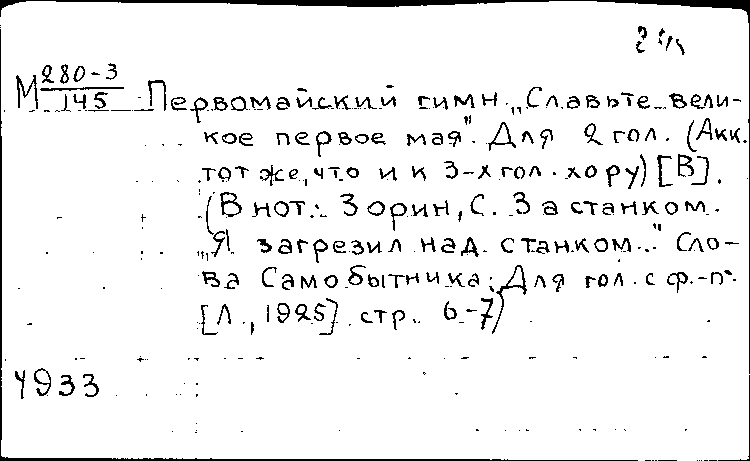 М 280-3
145
Первомайский гимн. „Славьте вели-
кое первое мая". Для 2 гол. (Акк.
тот же, что и к 3-х гол. хору) [В].
(В нот.: Зорин, С. За станком.
„Я загрезил над станком..." Сло-
ва Самобытника. Для гол. с ф.-п.
[Л., 1925] стр. 6-7)
4933